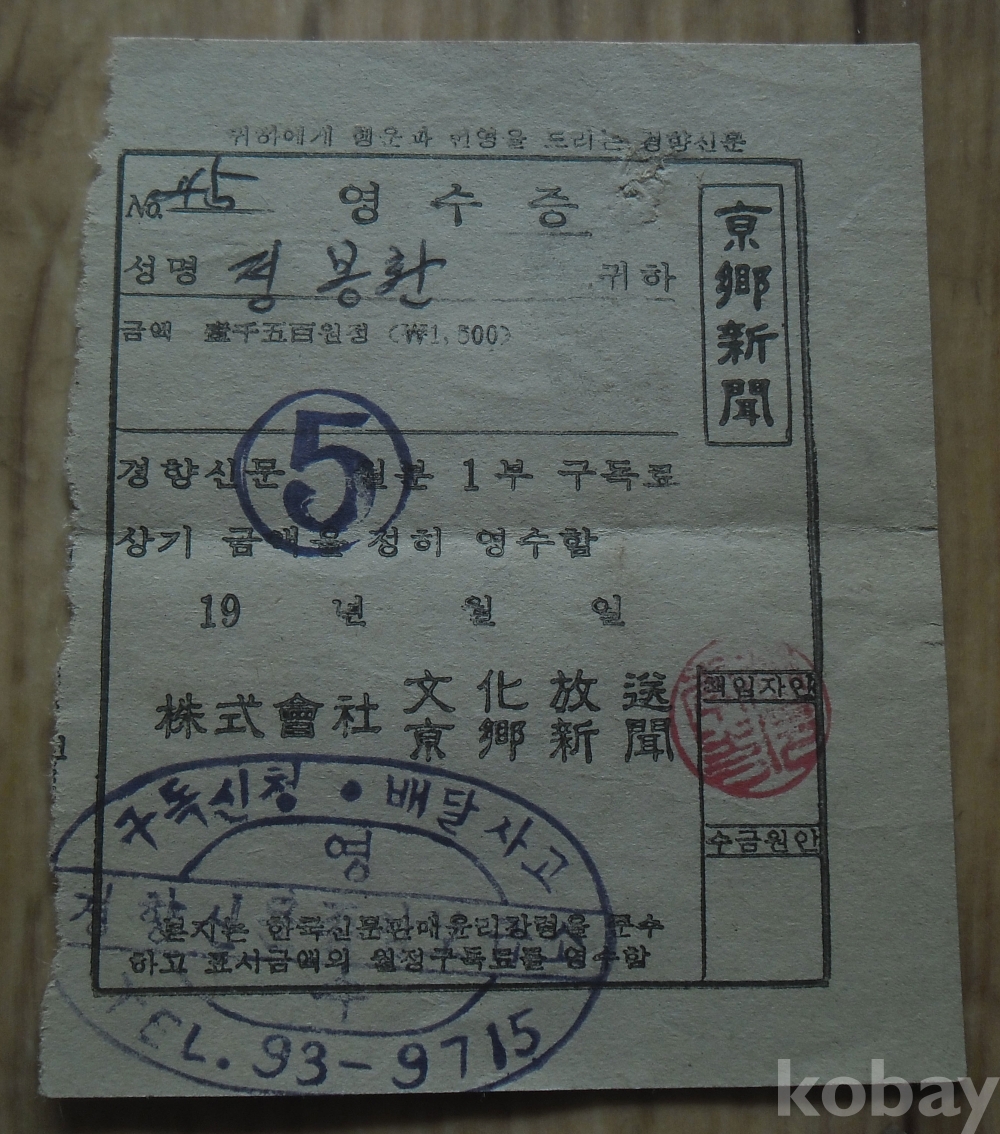 귀하에게 행운과 번영을 드리는 경향신문
No. 45 영수증
京鄕新聞
성명 정봉환 귀하
금액 壹千五百원정 (₩1,500)
경향신문 5 월분 1부 구독료
상기 금액을 정히 영수함
19 년 월 일
株式會社 文化放送
京鄕新聞
책임자인
수금원인
본지는 한국신문판매윤리강령을 준수
하고 표시금액의 월정구독료를 영수함
구독신청 • 배달사고
영
경향신문
수
TEL. 93-9715
kobay